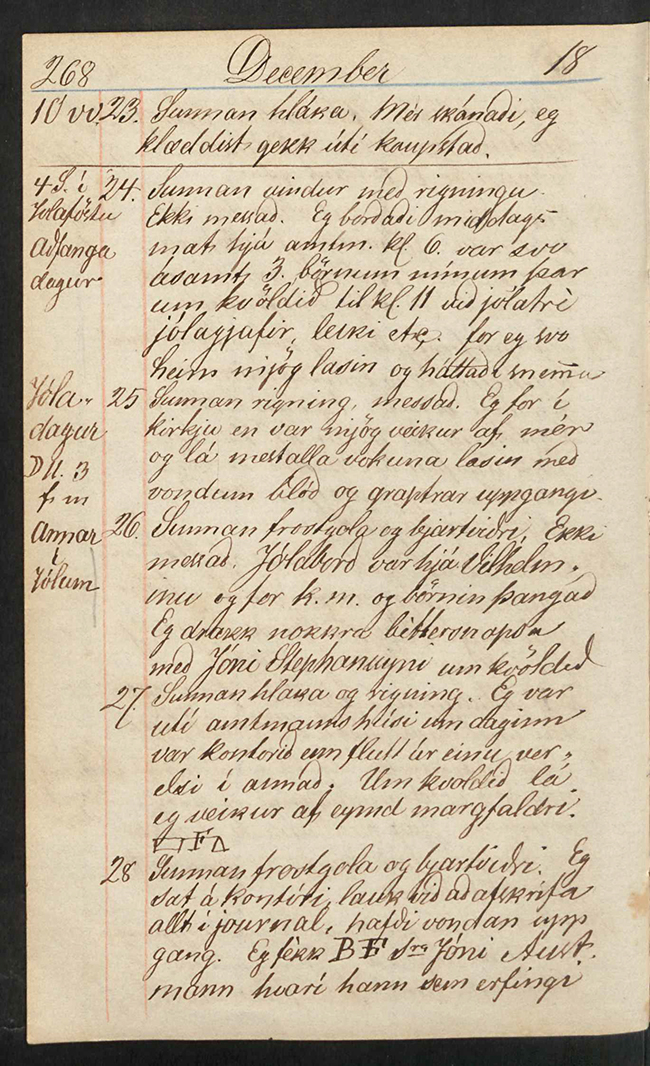 268 December 18
10 vv. 23. Sunnan hláka. Mér skánadi, eg
klæddist gekk úti kaupstad.
4 S. í 24. Sunnan vindur med rigningu.
Jólaföstu Ekki messad. Eg bordadi middags-
Adfanga mat hjá amtm. kl 6. var svo
dagur ásamt 3. börnum mínum þar
um kvöldid til kl. 11 vid jólatrè
jólagjafir, leiki etc. for eg svo
heim mjög lasin og háttadi snem̅a
Jóla- 25 Sunnan rigning, messad. Eg for í
dagur kirkju en var mjög veikur af mér
D U. 3 og lá mestalla vokuna lasin med
f. m vondum blód og graptrar uppgangi.
Annar 26. Sunnan frostgola og bjartvidri. Ekki
í messad. Jólabord var hjá Vilhelm-
Jólum inu og for k. m. og börnin þangad
Eg drakk nokkra bittersnapsa
med Jóni Stephanssyni um kvöldid
27. Sunnan hláka og rigning. Eg var
úti amtmanns húsi um daginn
var kontorid um flutt úr einu ver-
elsi í annad. Um kvoldid lá
eg veikur af eymd margfaldri.
F
28 Sunnan frostgola og bjartvidri. Eg
sat á kontóri, lauk vid ad afskrifa
allt í journal, hafdi vondan upp
gang. Eg fékk B F sra Jóni Aust-
mann hvarí hann sem erfingi